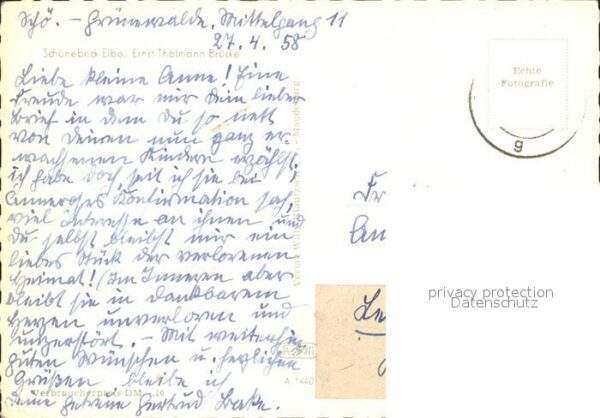 Schö. – Grünewalde, Mittelgang 11
27.4.58
Schönebeck-Elbe, Ernst-Thälmann-Brücke
Liebe kleine Anne! Eine
Freude war mir dein lieber
Brief in dem Du so nett
von deinen nun ganz er-
wachsenen Kindern erzählst.
ich habe doch, seit ich sie bei
Anneroses Konfirmation sah,
viel Interesse an ihnen und
Du selbst bleibst mir ein
liebes Stück der verlorenen
Heimat! (Im Inneren aber
bleibt sie in dankbarem
Herzen unverloren und
unzerstört. – Mit weiterhin
guten Wünschen u. herzlichen
Grüßen bleibe ich
Deine getreue Gertrud
Echte
Fotografie
g
Fr
An
Le
privacy protection
Datenschutz
A 1440
Verbraucherpreis DM -,20